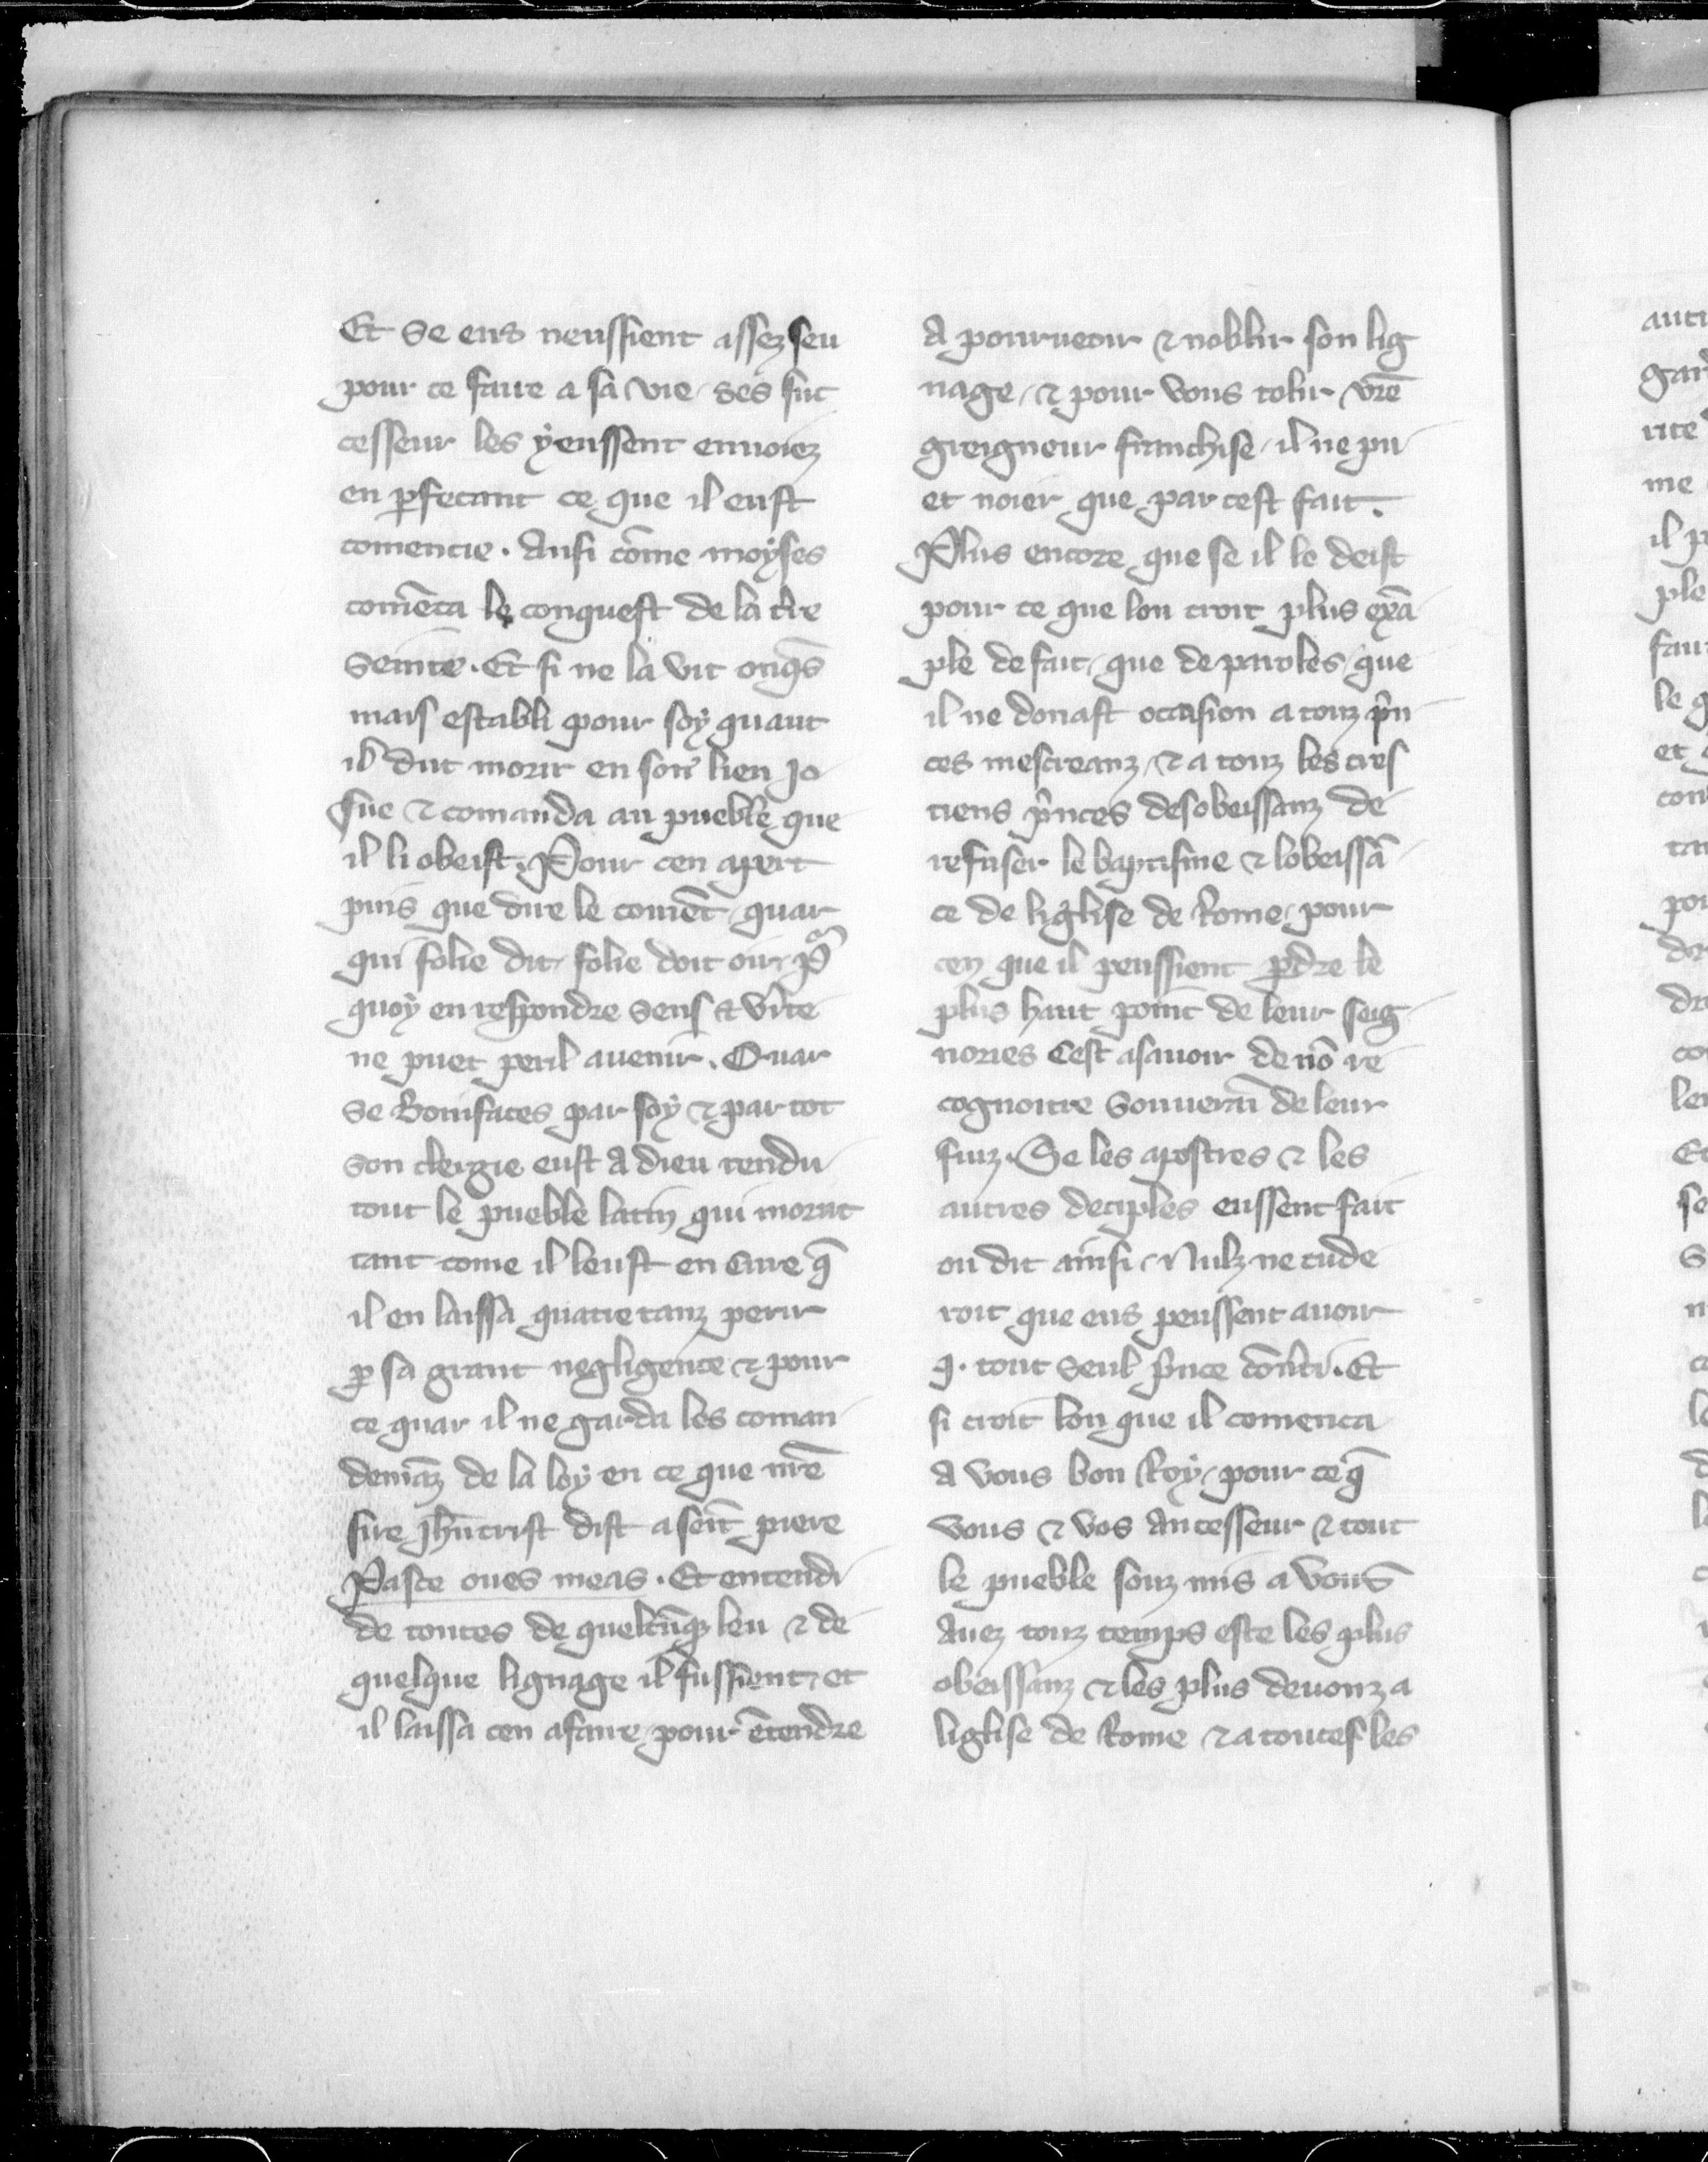 Et se eus neussient assez seu
pour ce faire a sa vie / ses suc
cesseur les y eussent enuoiez
en ꝑfetant ce que il eust
comencie. Ausi cōme moyses
comēca le conquest de la t̄re
seinte. Et si ne la vit onq̄s
mais establi pour soy quant
il dut morir en son lieu Jo
sue ⁊ comanda au pueble que
il li obeist. Pour cen apert
puis que dire le comēt / quar
qui folie dit / folie doit oir. Pᵃ
quoy en respondre sens et v̄ite
ne puet peril auenir. Quar
se Bonifaces par soy ⁊ par tot
son clergie eust a dieu rendu
tout le pueble latin qui morut
tant come il leust en cure q̄
il en laissa quatre tanz perir
ꝑ sa grant negligence ⁊ pour
ce quar il ne garda les coman
demāz de la loy en ce que nr̄e
sire Jhūcrist dist a seīt piere
Pasce oues meas. Et entendi
de toutes de quelcūqz leu ⁊ de
quelque lignage il fussient / et
il laissa cen a faire / pour ētendre
a pourueoir ⁊ noblir son lig
nage / ⁊ pour vous tolir vr̄e
greigneur franchise / il ne pu
et noier que par cest fait.
Plus encore que se il le deist
pour ce que lon croit plus exā
ple de fait / que de paroles / que
il ne donast occasion a touz p̄in
ces mescreanz / ⁊ a touz les cres
tiens p̄inces desobeissanz de
refuser le baptisme ⁊ lobeissā
ce de liglise de Rome / pour
cen que il peussient ꝑdre le
plus haut point de leur seig
nories Cest asauoir de nō re
cognoitre souuerain de leur
fiuz. Se les apostres ⁊ les
autres deciples eussent fait
ou dit ainsi / Nulz ne cude
roit que eus peussent auoir
.j. tout seul p̄ince cōu̅ti. Et
si croit lon que il comenca
a vous bon Roy / pour ce q̄
vous ⁊ vos ancesseur ⁊ tout
le pueble souz mis a vous
Auez touz temps este les plus
obeissanz ⁊ les plus deuonz a
liglise de Rome ⁊ a toutes les